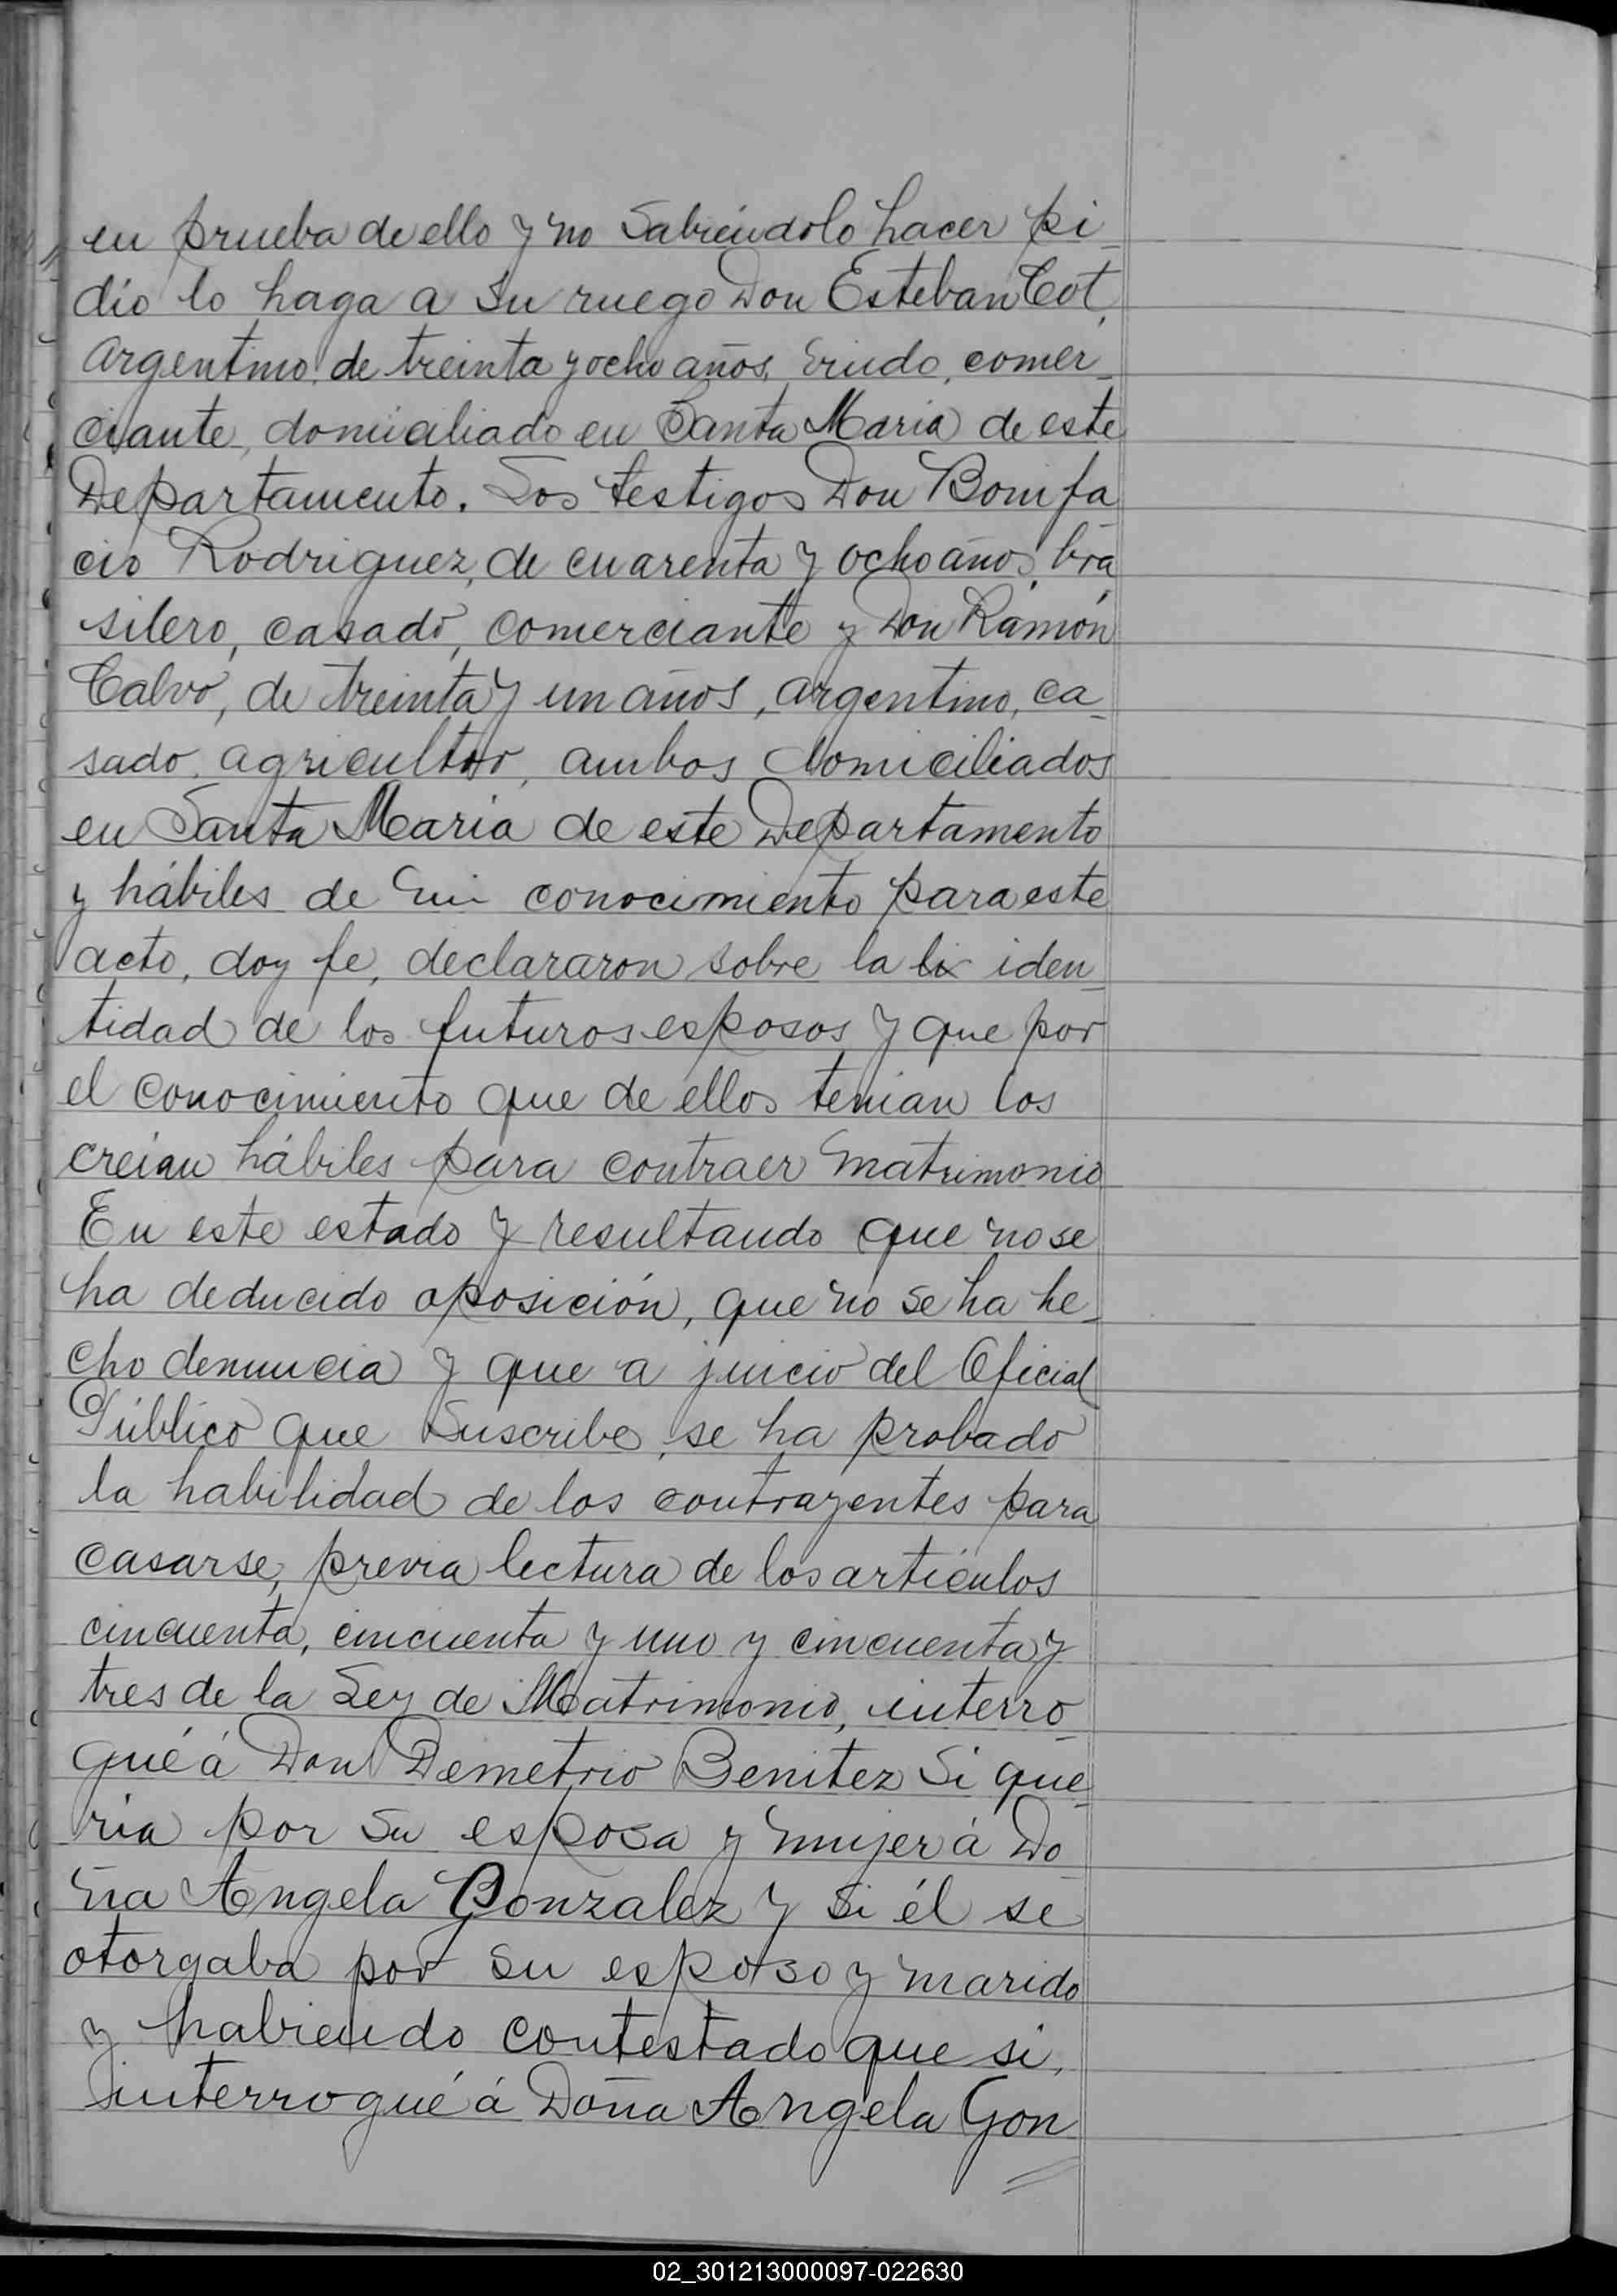 en prueba de ello y no sabiéndolo hacer pi-
dio lo haga a su ruego Don Esteban Cot,
argentino, de treinta y ocho años, viudo, comer-
ciante, domiciliado en Santa María de este
Departamento. Los testigos Don Bonifa-
cio Rodriguez, de cuarenta y ocho años, bra-
silero, casado, comerciante y Don Ramón
Calvo, de treinta y un años, argentino, ca-
sado, agricultor, ambos domiciliados
en Santa Maria de este Departamento
y hábiles de mi conocimiento para este
acto, doy fe, declararon sobre la li iden-
tidad de los futuros esposos y que por
el conocimiento que de ellos tenian los
creían hábiles para contraer matrimonio
En este estado y resultando que no se
ha deducido oposición, que no se ha he-
cho denuncia y que a juicio del Oficial
Público que suscribe, se ha probado
la habilidad de los contrayentes para
casarse, previa lectura de los artículos
cincuenta, cincuenta y uno y cincuenta y
tres de la Ley de Matrimonio, interro-
gué á Don Demetrio Benitez si que-
ria por su esposa y mujer á Do-
ña Angela Gonzalez y si él se
otorgaba por su esposo y marido
y habiendo contestado que si,
interrogué á Doña Angela Gon
02_301213000097-022630